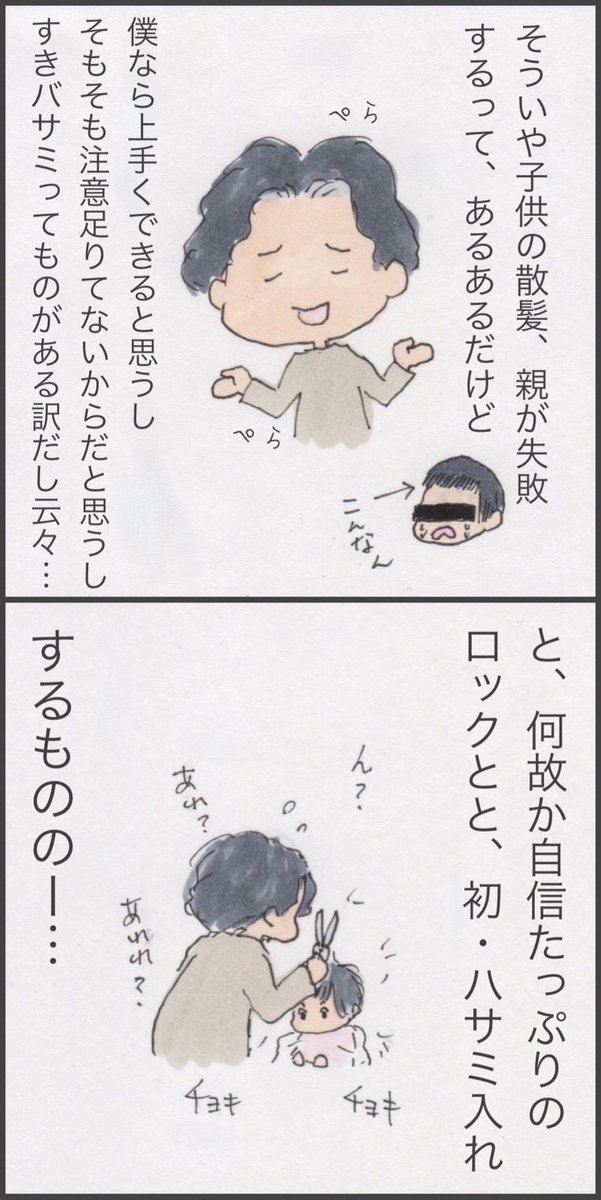 そういや子供の散髪、親が失敗
するって、あるあるだけど
ぺら
ぺら
僕なら上手くできると思うし
そもそも注意足りてないからだと思うし
すきバサミってものがある訳だし云々…
こんなん
と、何故か自信たっぷりの
ロックとと、初・ハサミ入れ
ん?
あれ?
あれれ?
チョキ
チョキ
するもののー…